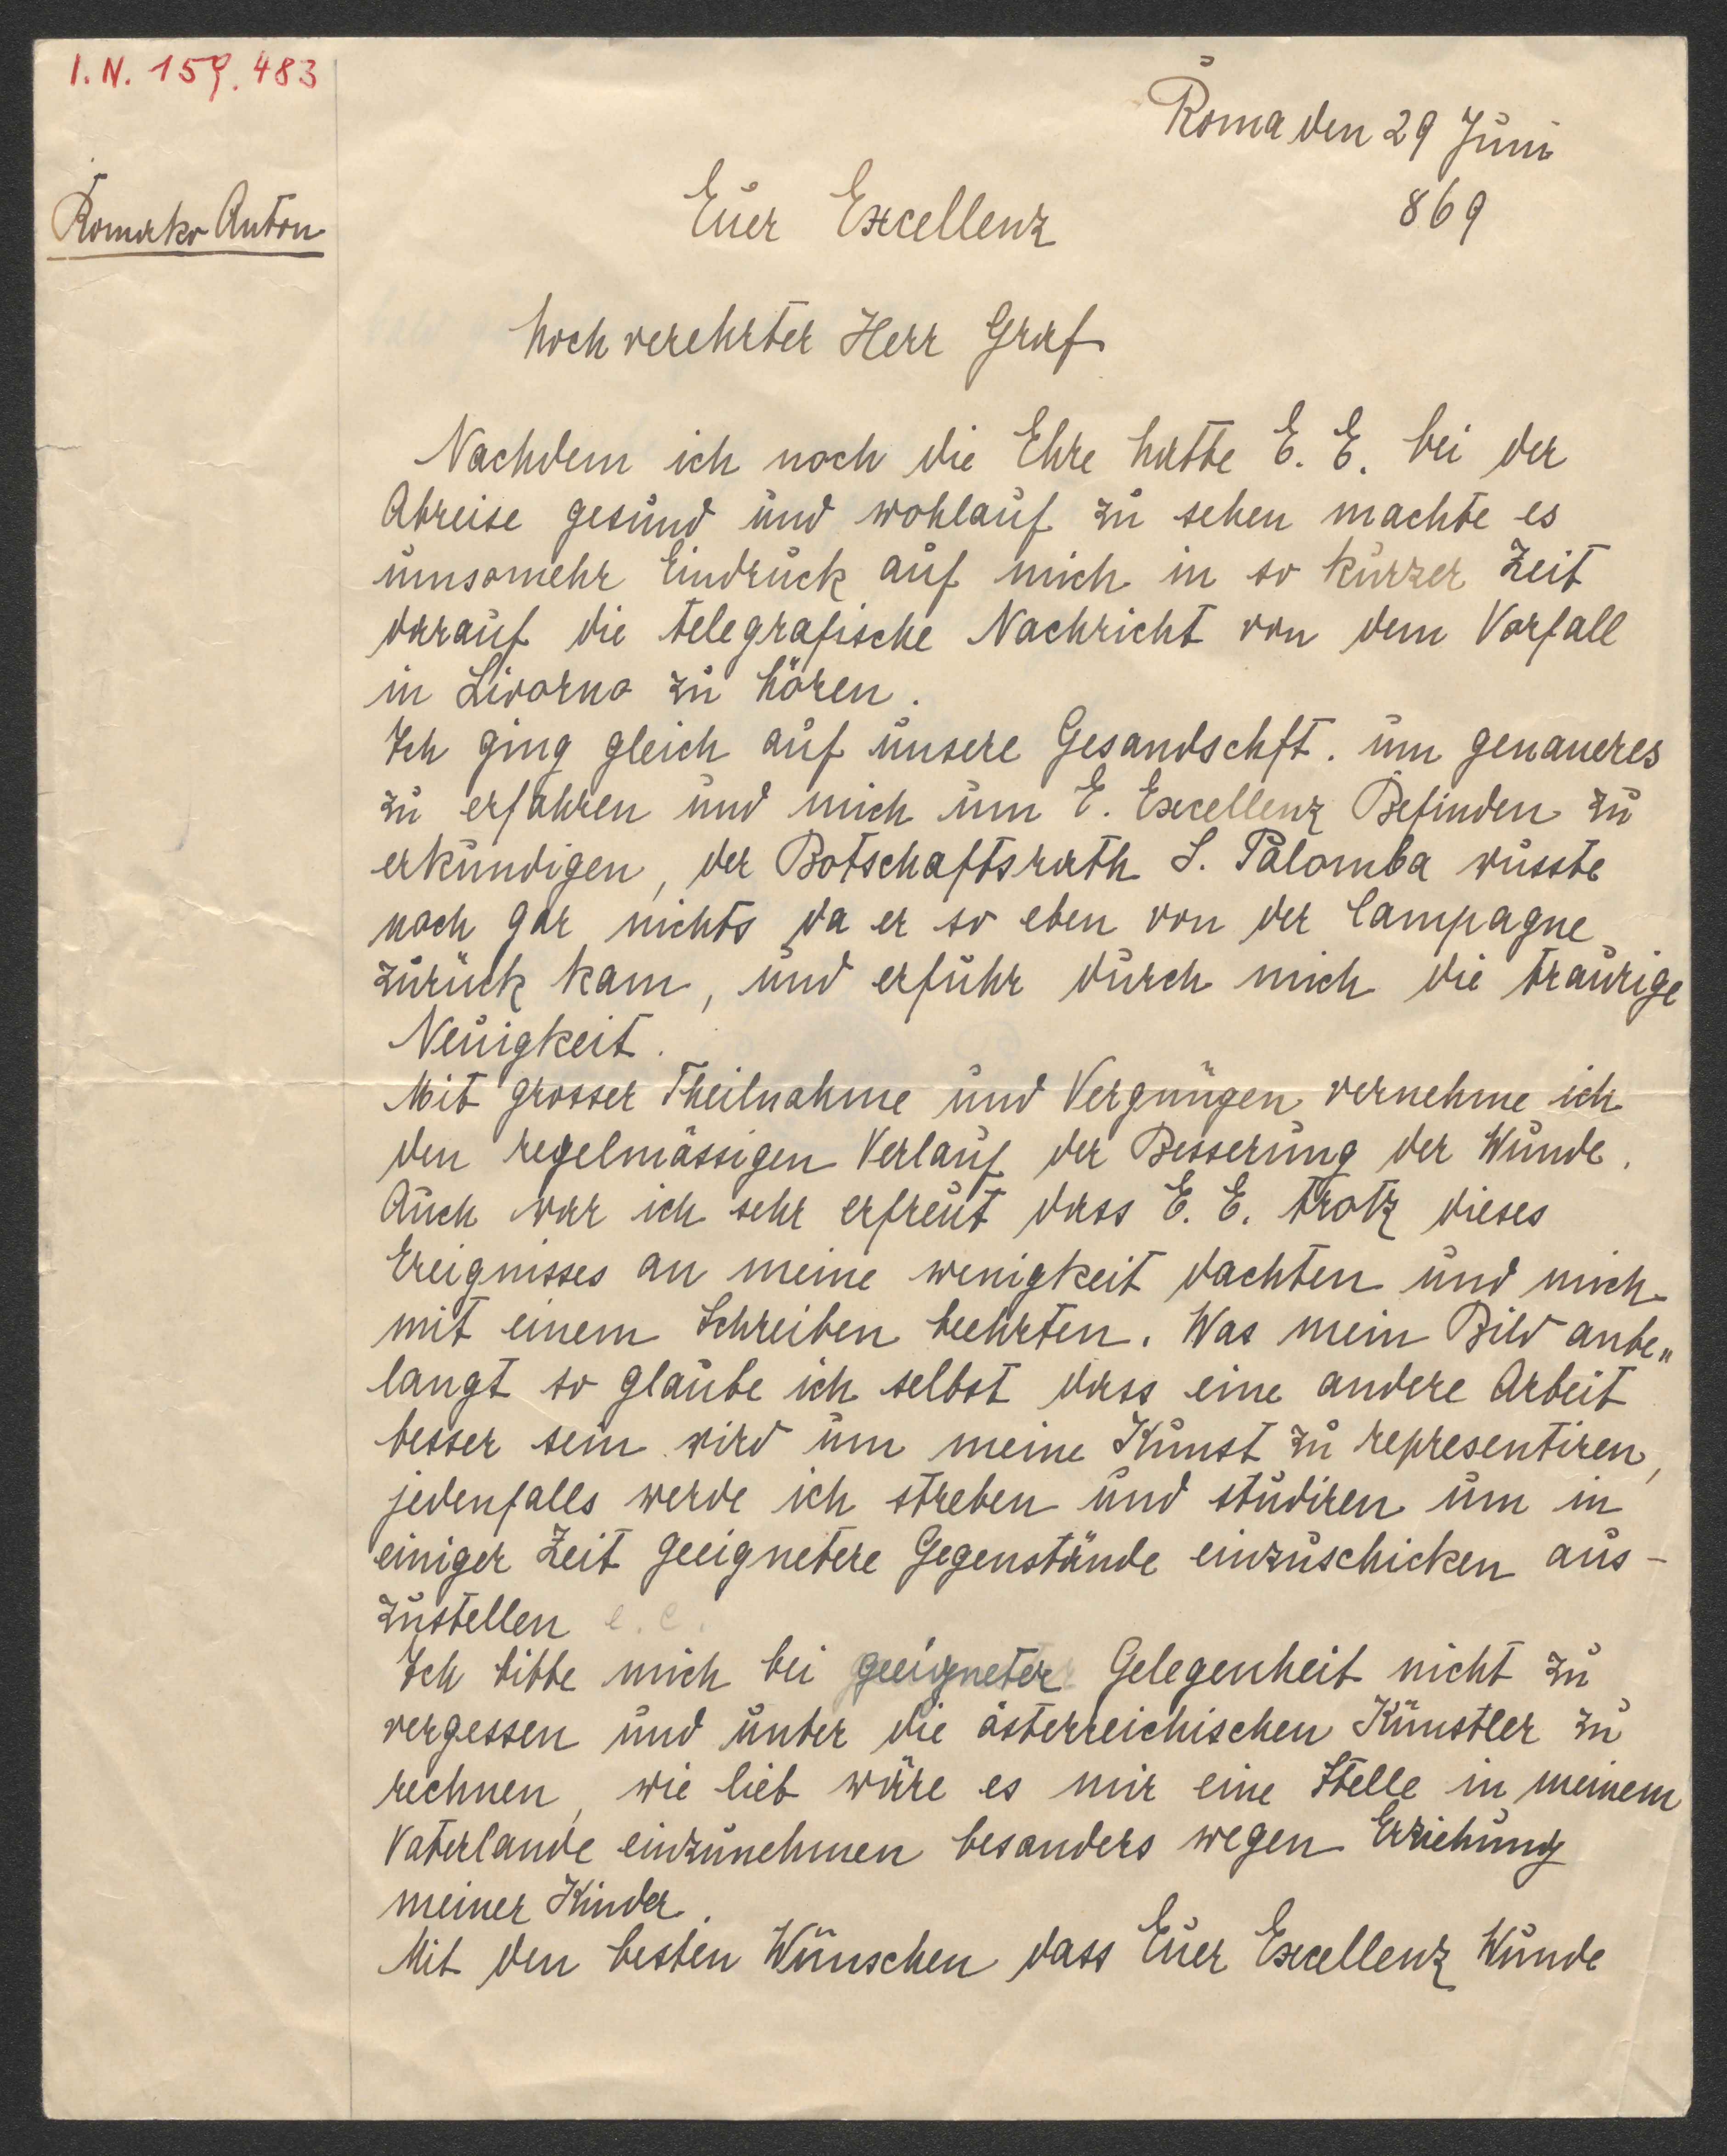 I. N. 159.483
Roma den 29 Juni
869
Romako Anton
Euer Excellenz
hoch verehrter Herr Graf
Nachdem ich noch die Ehre hatte E. E. bei der
Abreise gesund und wohlauf zu sehen machte es
umsomehr Eindruck auf mich in so kurzer Zeit
darauf die telegrafische Nachricht von dem Vorfall
in Livorno zu hören.
Ich ging gleich auf unsere Gesandschft. um genaueres
zu erfahren und mich um E. Excellenz Befinden zu
erkundigen, der Botschaftsrath S. Palomba wusste
noch gar nichts da er so eben von der Campagne
zurück kam, und erfuhr durch mich die traurige
Neuigkeit.
Mit grosser Theilnahme und Vergnügen vernehme ich
den regelmässigen Verlauf der Besserung der Wunde.
Auch war ich sehr erfreut dass E. E. trotz dieses
Ereignisses an meine wenigkeit dachten und mich
mit einem Schreiben beehrten. Was mein Bild anbe„
langt so glaube ich selbst dass eine andere Arbeit
besser sein wird um meine Kunst zu representiren,
jedenfalls werde ich streben und studiren um in
einiger Zeit geeignetere Gegenstände einzuschicken aus-
zustellen e. c.
Ich bitte mich bei geeigneter Gelegenheit nicht zu
vergessen und unter die österreichischen Künstler zu
rechnen, wie lieb wäre es mir eine Stelle in meinem
Vaterlande einzunehmen besonders wegen Erziehung
meiner Kinder.
Mit den besten Wünschen dass Euer Excellenz Wunde